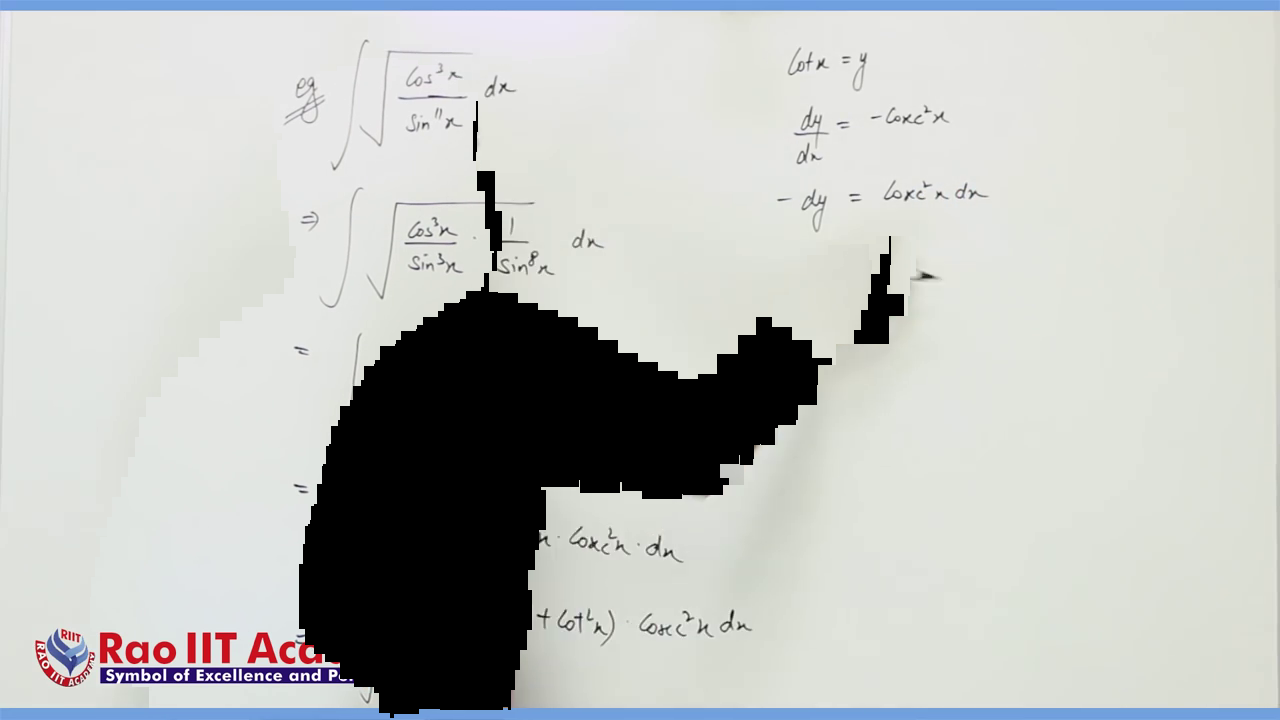 eg ∫ √(cos³x / sin¹¹x) dx
⇒ ∫ √(cos³x / sin³x · 1 / sin⁸x) dx
= ∫
=
x · cosec²x · dx
= + cot²x) · cosec²x dx
cot x = y
dy/dx = -cosec²x
- dy = cosec²x dx
RIIT
RAO IIT ACADEMY
Rao IIT Aca
Symbol of Excellence and